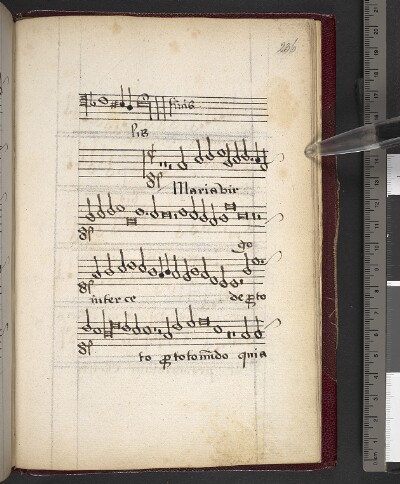 236
finis
lis
Maria vir
go
interce de pro to
to pro toto mundo quia